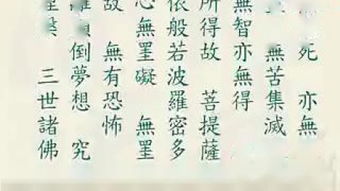 死 亦無
無苦集滅
無智亦無得
所得故 菩提薩
依般若波羅密多
心無罣礙 無罣
故 無有恐怖
顛倒夢想 究
槃 三世諸佛